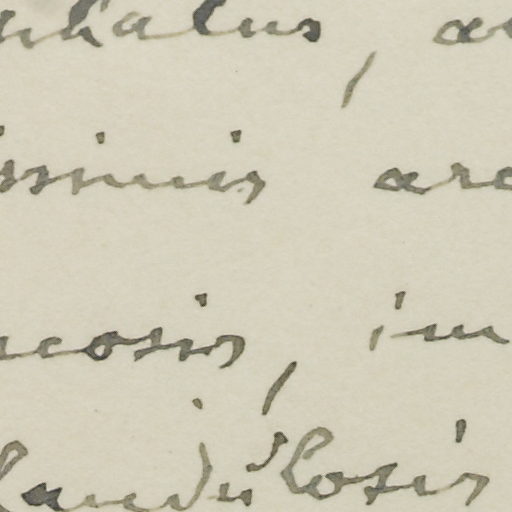 phalus, a
ssimis arc
cosis, in
landulosis